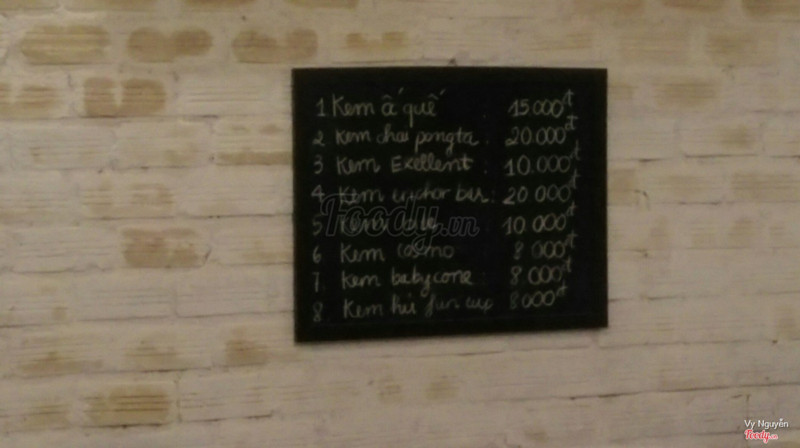 1 Kem ấ quế 15 000đ
2 Kem chai pongta : 20 000đ
3 Kem Exellent . 10.000đ
4 Kem bar : 20 000đ
5 Kem 10 000đ
6 Kem cosmo 8 000đ
7 Kem babycone : 8 000đ
8 Kem fun cup 8 000đ
Foody.vn
Vy Nguyễn
Foody.vn